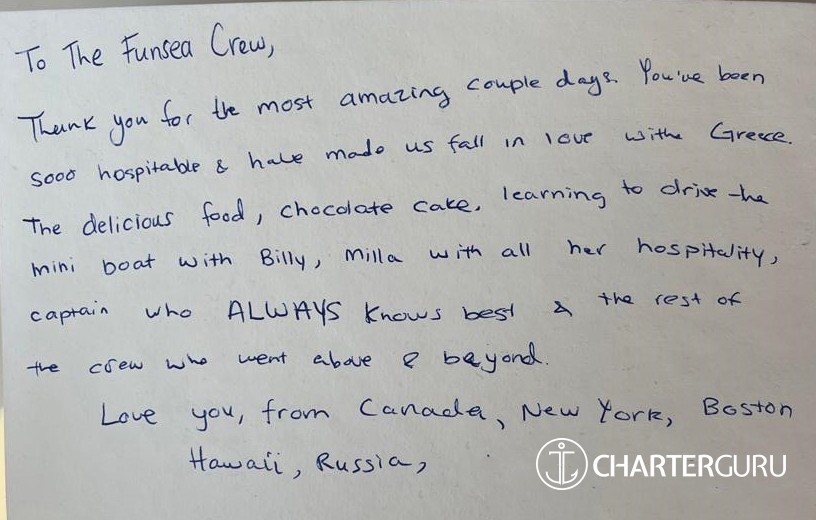 To The Funsea Crew,
Thank you for the most amazing couple days. You've been
sooo hospitable & have made us fall in love withe Greece.
The delicious food, chocolate cake, learning to drive the
mini boat with Billy, Milla with all her hospitality,
captain who ALWAYS knows best & the rest of
the crew who went above & beyond.
Love you, from Canada, New York, Boston
Hawaii, Russia,
CHARTERGURU